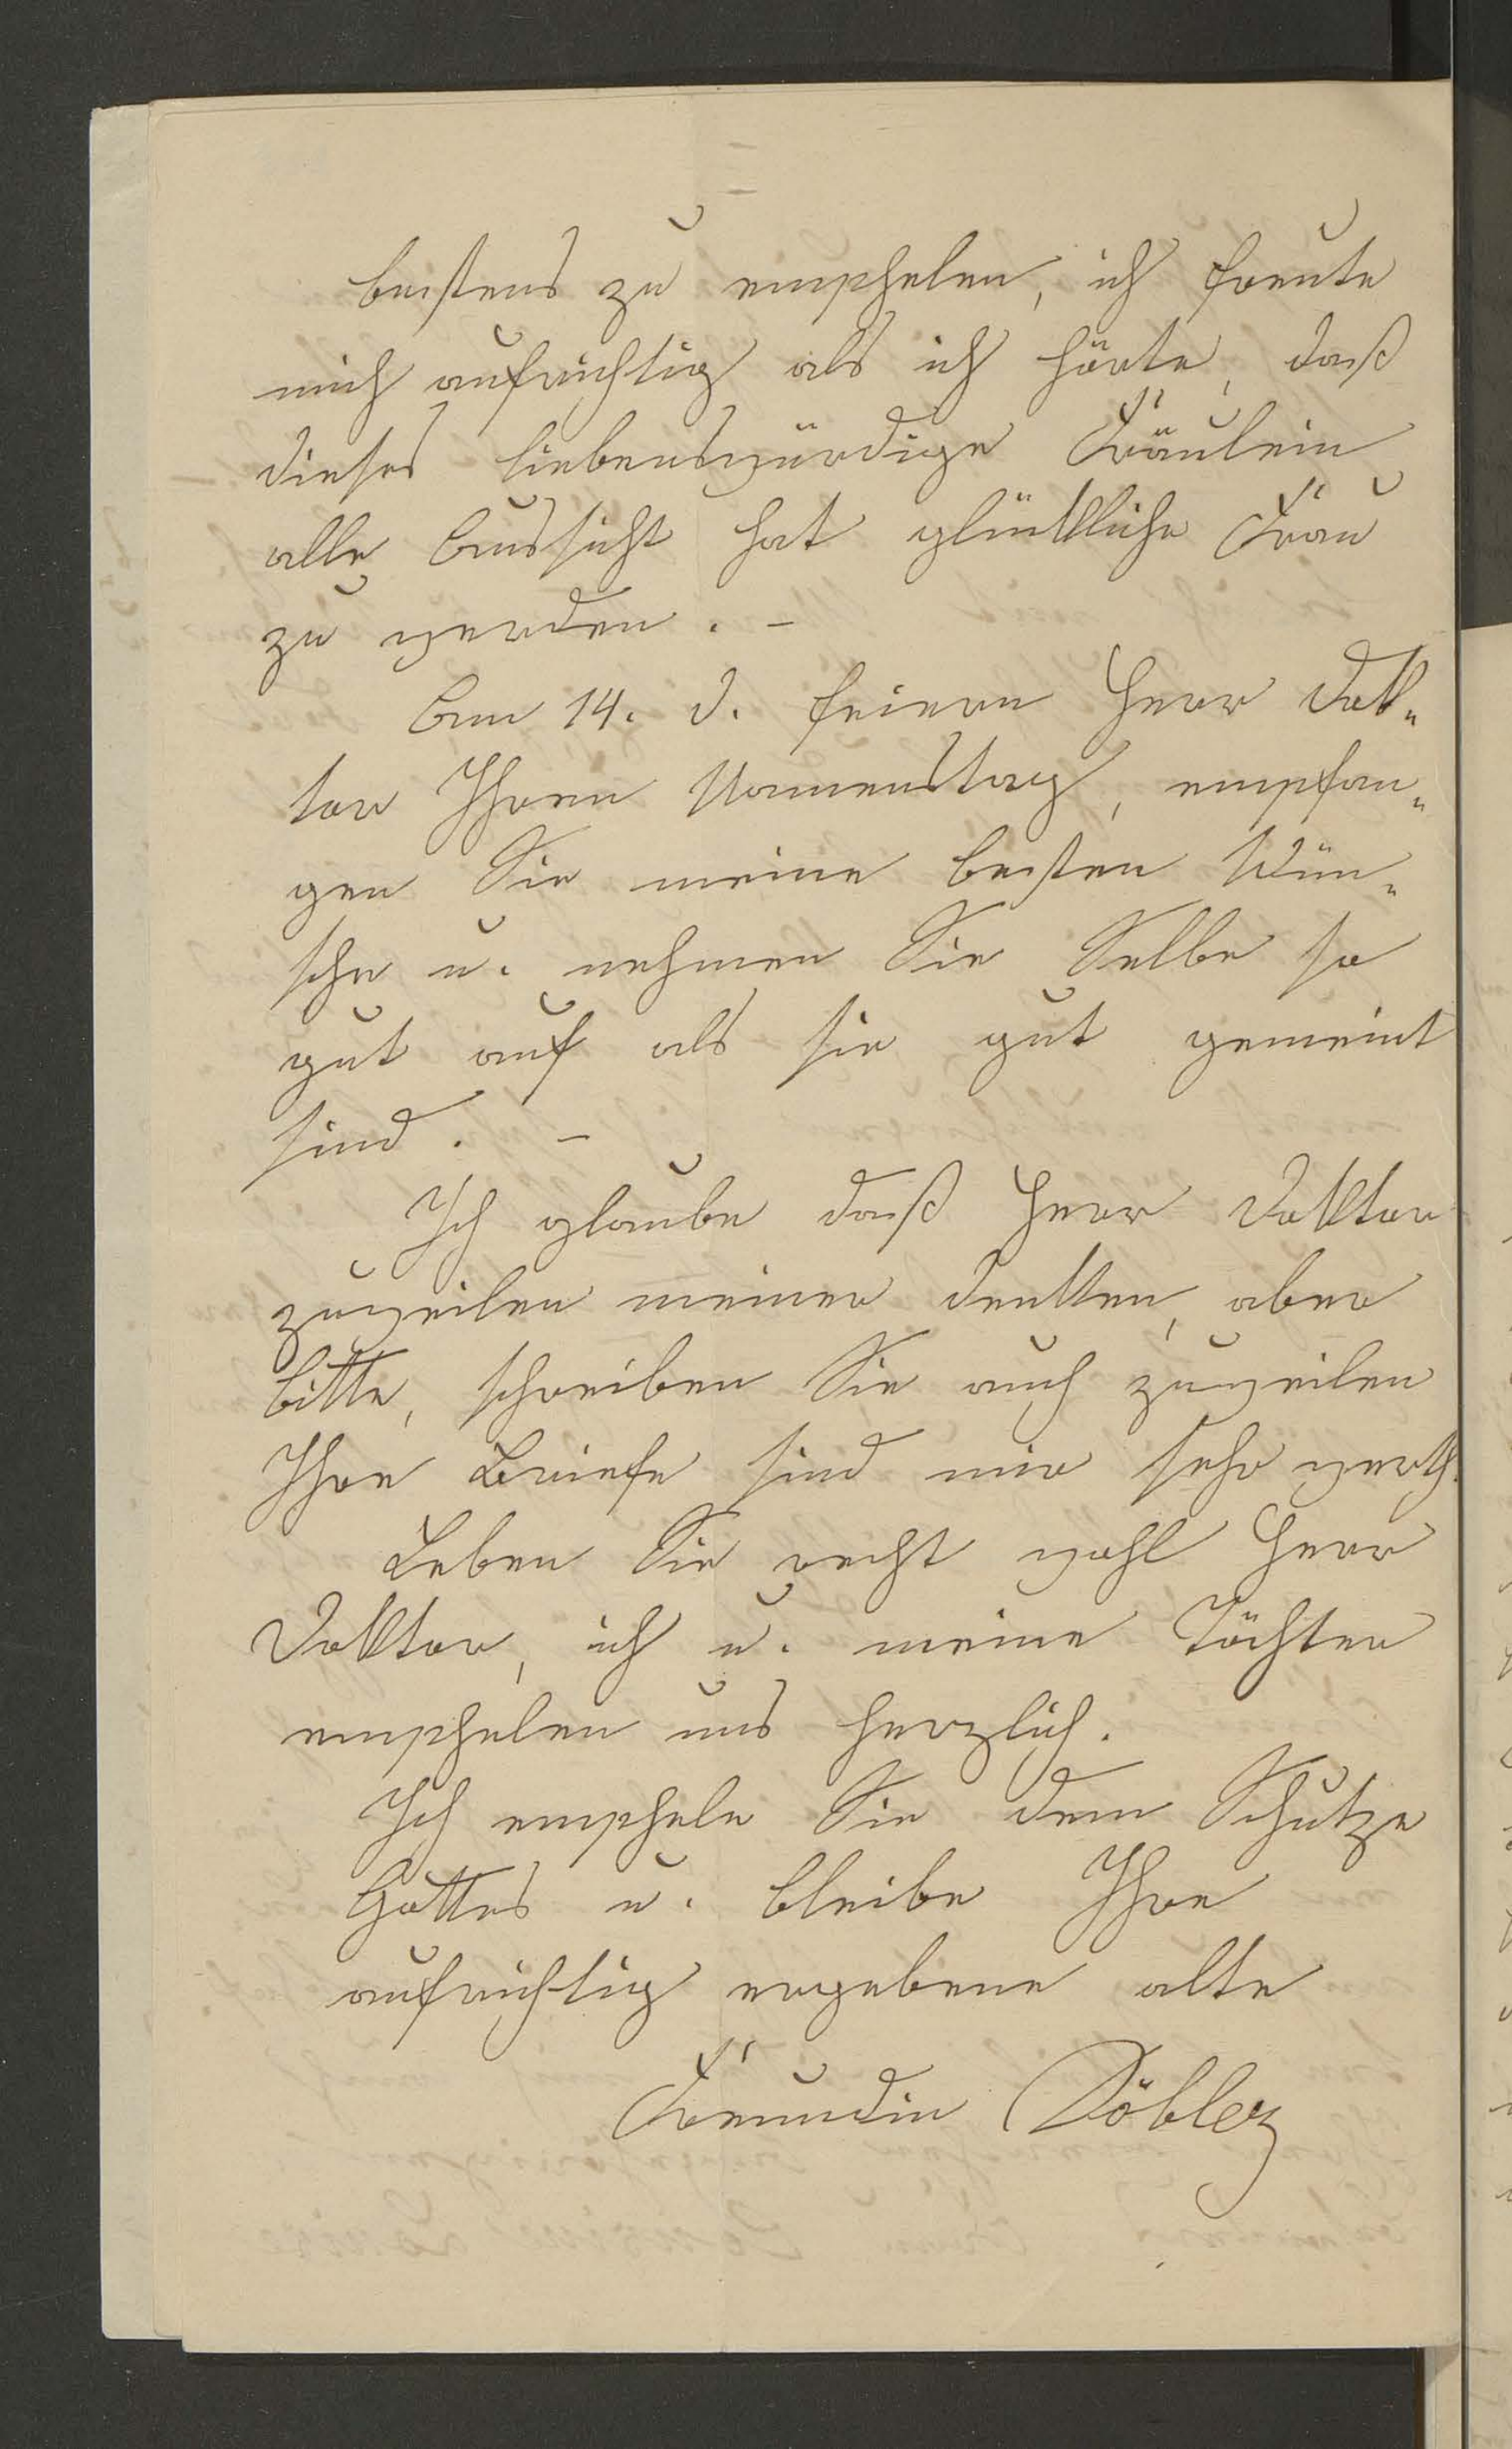 bestens zu emphelen, ich freute
mich aufrichtig als ich hörte, daß
dieses liebenswürdige Fräulein
alle Aussicht hat glückliche Frau
zu werden. –
Am 14. d. feiern Herr Dok„
tor Ihren Namenstag, empfan„
gen Sie meine besten Wün„
sche u. nehmen Sie Selbe so
gut auf als sie gut gemeint
sind. –
Ich glaube daß Herr Doktor
zuweilen meiner denken, aber
bitte, schreiben Sie auch zuweilen
Ihre Briefe sind mir sehr werth.
Leben Sie recht wohl Herr
Doktor, ich u. meine Töchter
emphelen uns herzlich.
Ich emphele Sie dem Schutze
Gottes u. bleibe Ihre
aufrichtig ergebene alte
Freundin Döbler